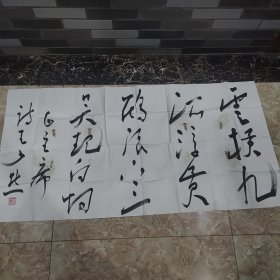 雲横九
派浮黄
鹤浪下三
吴起白烟
毛主席
诗